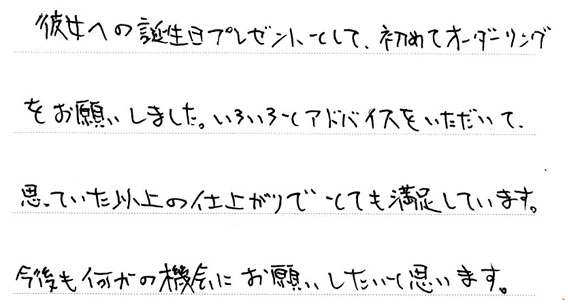 彼女への誕生日プレゼントとして、初めてオーダーリング
をお願いしました。いろいろとアドバイスをいただいて、
思っていた以上の仕上がりでとても満足しています。
今後も何かの機会にお願いしたいと思います。